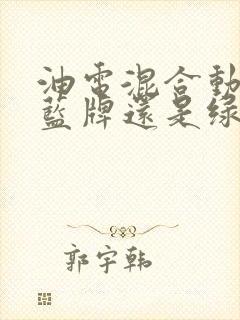 油電混合動
藍牌還是綠
郭宇韩